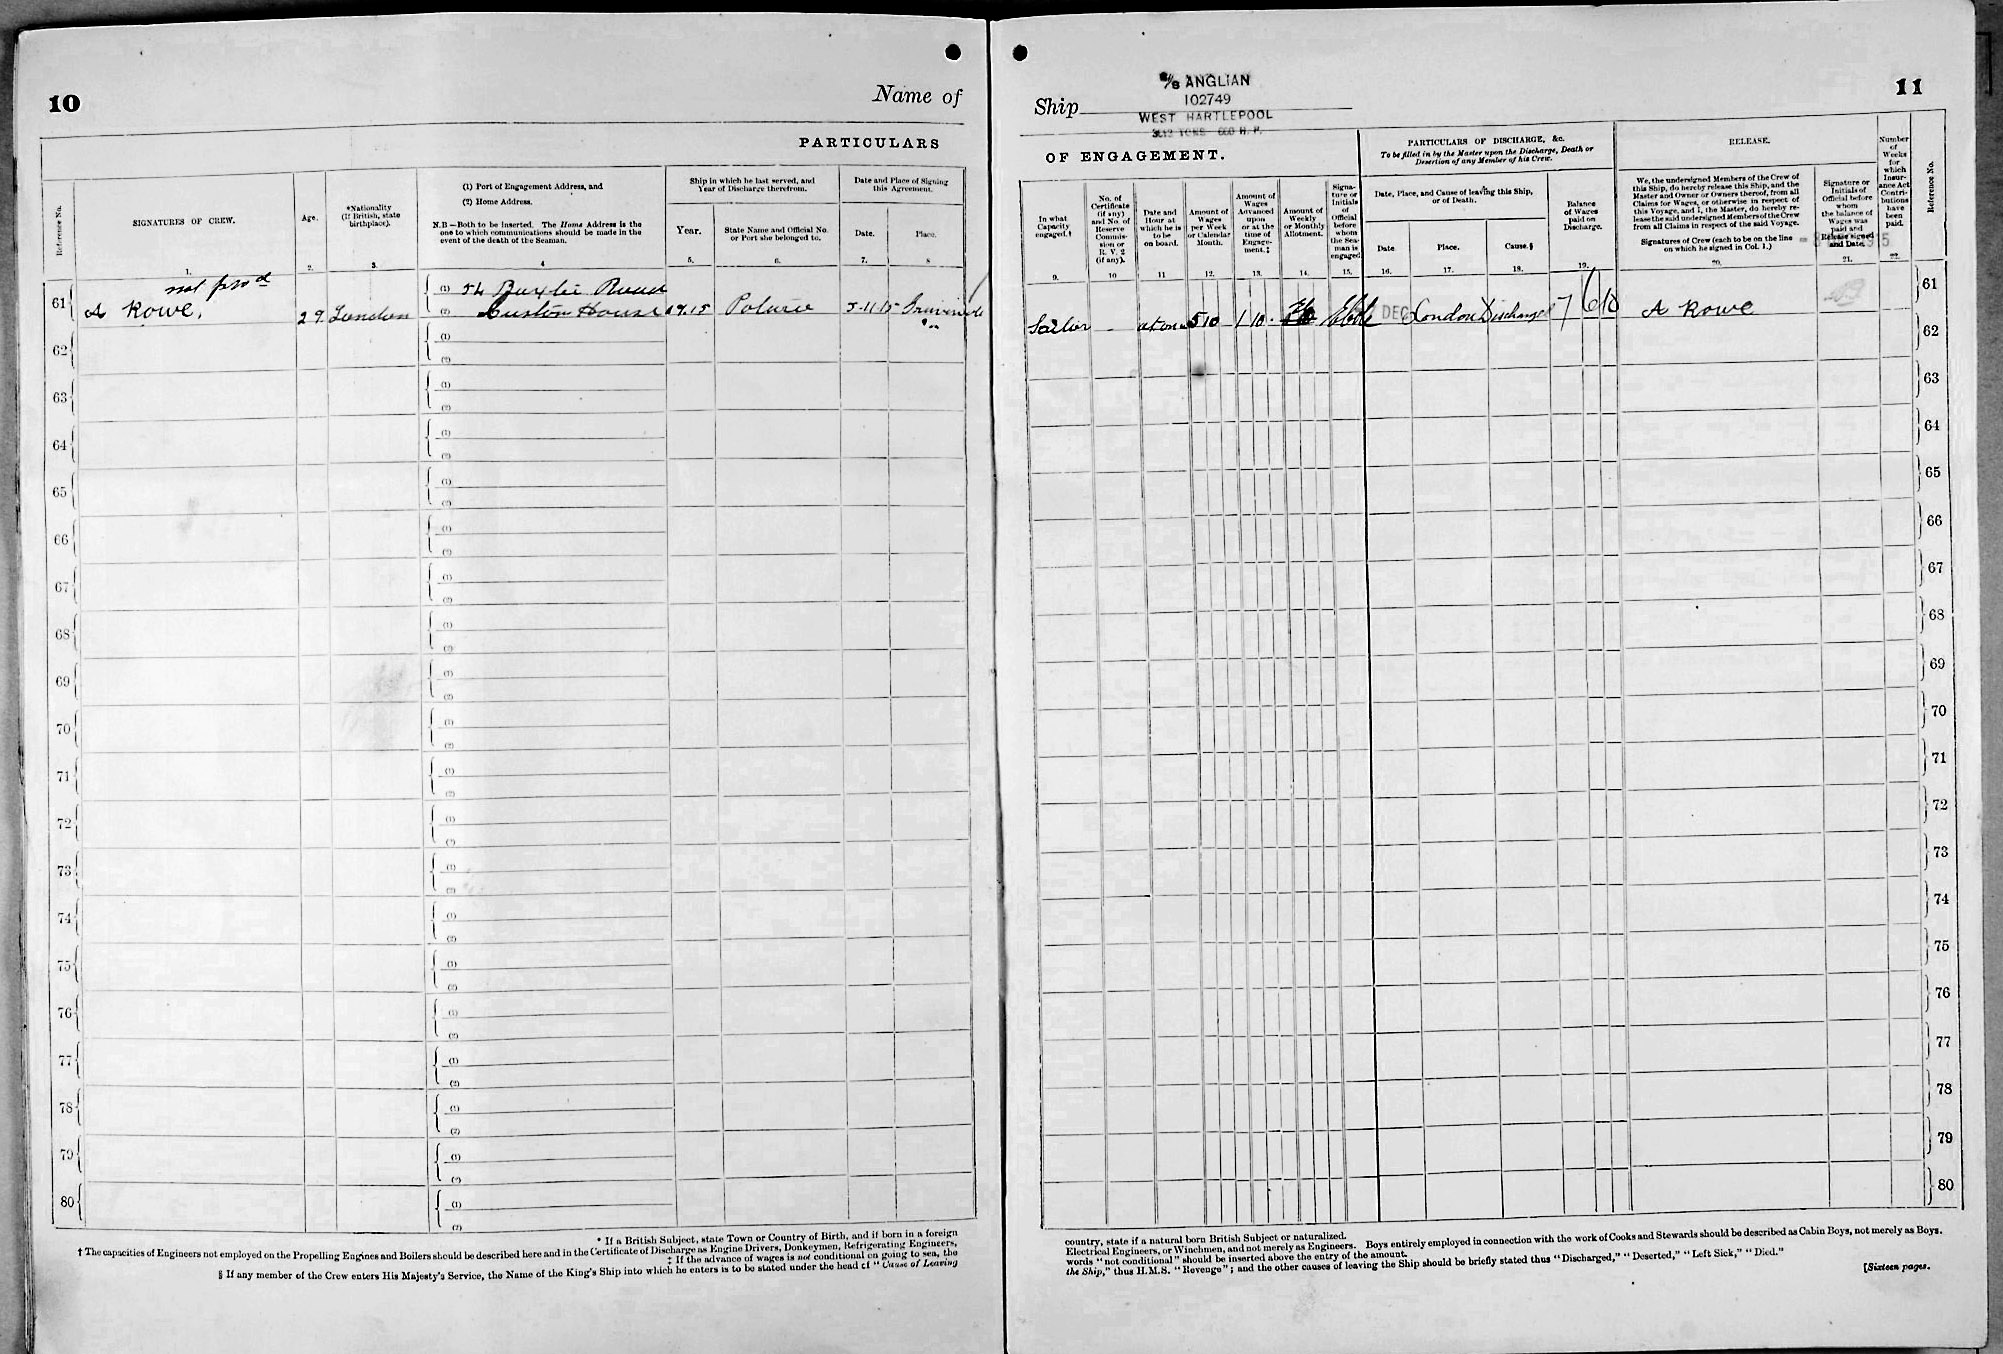 10
Name of
PARTICULARS
Reference No.
SIGNATURES OF CREW.
Age.
*Nationality
(If British, state
birthplace).
(1) Port of Engagement Address, and
(2) Home Address.
N.B—Both to be inserted. The Home Address is the
one to which communications should be made in the
event of the death of the Seaman.
Ship in which he last served, and
Year of Discharge therefrom.
Year.
State Name and Official No.
or Port she belonged to.
Date and Place of Signing
this Agreement.
Date.
Place.
1. 2. 3. 4 5. 6. 7. 8
not prod
61 A Rowe, 29 London
(1) 54 Road
(2) Custom House 1915 5-11-15
62 (1) (2)
63 (1) (2)
64 (1) (2)
65 (1) (2)
66 (1) (2)
67 (1) (2)
68 (1) (2)
69 (1) (2)
70 (1) (2)
71 (1) (2)
72 (1) (2)
73 (1) (2)
74 (1) (2)
75 (1) (2)
76 (1) (2)
77 (1) (2)
78 (1) (2)
79 (1) (2)
80 (1) (2)
* If a British Subject, state Town or Country of Birth, and if born in a foreign
† The capacities of Engineers not employed on the Propelling Engines and Boilers should be described here and in the Certificate of Discharge as Engine Drivers, Donkeymen, Refrigerating Engineers,
‡ If the advance of wages is not conditional on going to sea, the
§ If any member of the Crew enters His Majesty's Service, the Name of the King's Ship into which he enters is to be stated under the head of "Cause of Leaving
11
Ship
S/S ANGLIAN
102749
WEST HARTLEPOOL
TONS 600 H.P.
OF ENGAGEMENT.
PARTICULARS OF DISCHARGE, &c.
To be filled in by the Master upon the Discharge, Death or
Desertion of any Member of his Crew.
RELEASE.
In what
Capacity
engaged.†
No. of
Certificate
(if any)
and No. of
Reserve
Commis-
sion or
R. V. 2
(if any).
Date and
Hour at
which he is
to be
on board.
Amount of
Wages
per Week
or Calendar
Month.
Amount of
Wages
Advanced
upon
or at the
time of
Engage-
ment.‡
Amount of
Weekly
or Monthly
Allotment.
Signa-
ture or
Initials
of
Official
before
whom
the Sea-
man is
engaged
Date, Place, and Cause of leaving this Ship,
or of Death.
Date.
Place.
Cause.§
Balance
of Wages
paid on
Discharge.
We, the undersigned Members of the Crew of
this Ship, do hereby release this Ship, and the
Master and Owner or Owners thereof, from all
Claims for Wages, or otherwise in respect of
this Voyage, and I, the Master, do hereby re-
lease the said undersigned Members of the Crew
from all Claims in respect of the said Voyage.
Signatures of Crew (each to be on the line
on which he signed in Col. 1.)
Signature or
Initials of
Official before
whom
the balance of
Wages was
paid and
Release signed
and Date.
Number
of
Weeks
for
which
Insur-
ance Act
Contri-
butions
have
been
paid.
Reference No.
9. 10 11 12. 13. 14. 15. 16. 17. 18. 19. 20. 21. 22.
Sailor – at once 5 10 1 10 DEC London Discharged 7 6 10 A Rowe 61
62
63
64
65
66
67
68
69
70
71
72
73
74
75
76
77
78
79
80
country, state if a natural born British Subject or naturalized.
Electrical Engineers, or Winchmen, and not merely as Engineers. Boys entirely employed in connection with the work of Cooks and Stewards should be described as Cabin Boys, not merely as Boys.
words "not conditional" should be inserted above the entry of the amount.
the Ship," thus H.M.S. "Revenge"; and the other causes of leaving the Ship should be briefly stated thus "Discharged," "Deserted," "Left Sick," "Died."
[Sixteen pages.